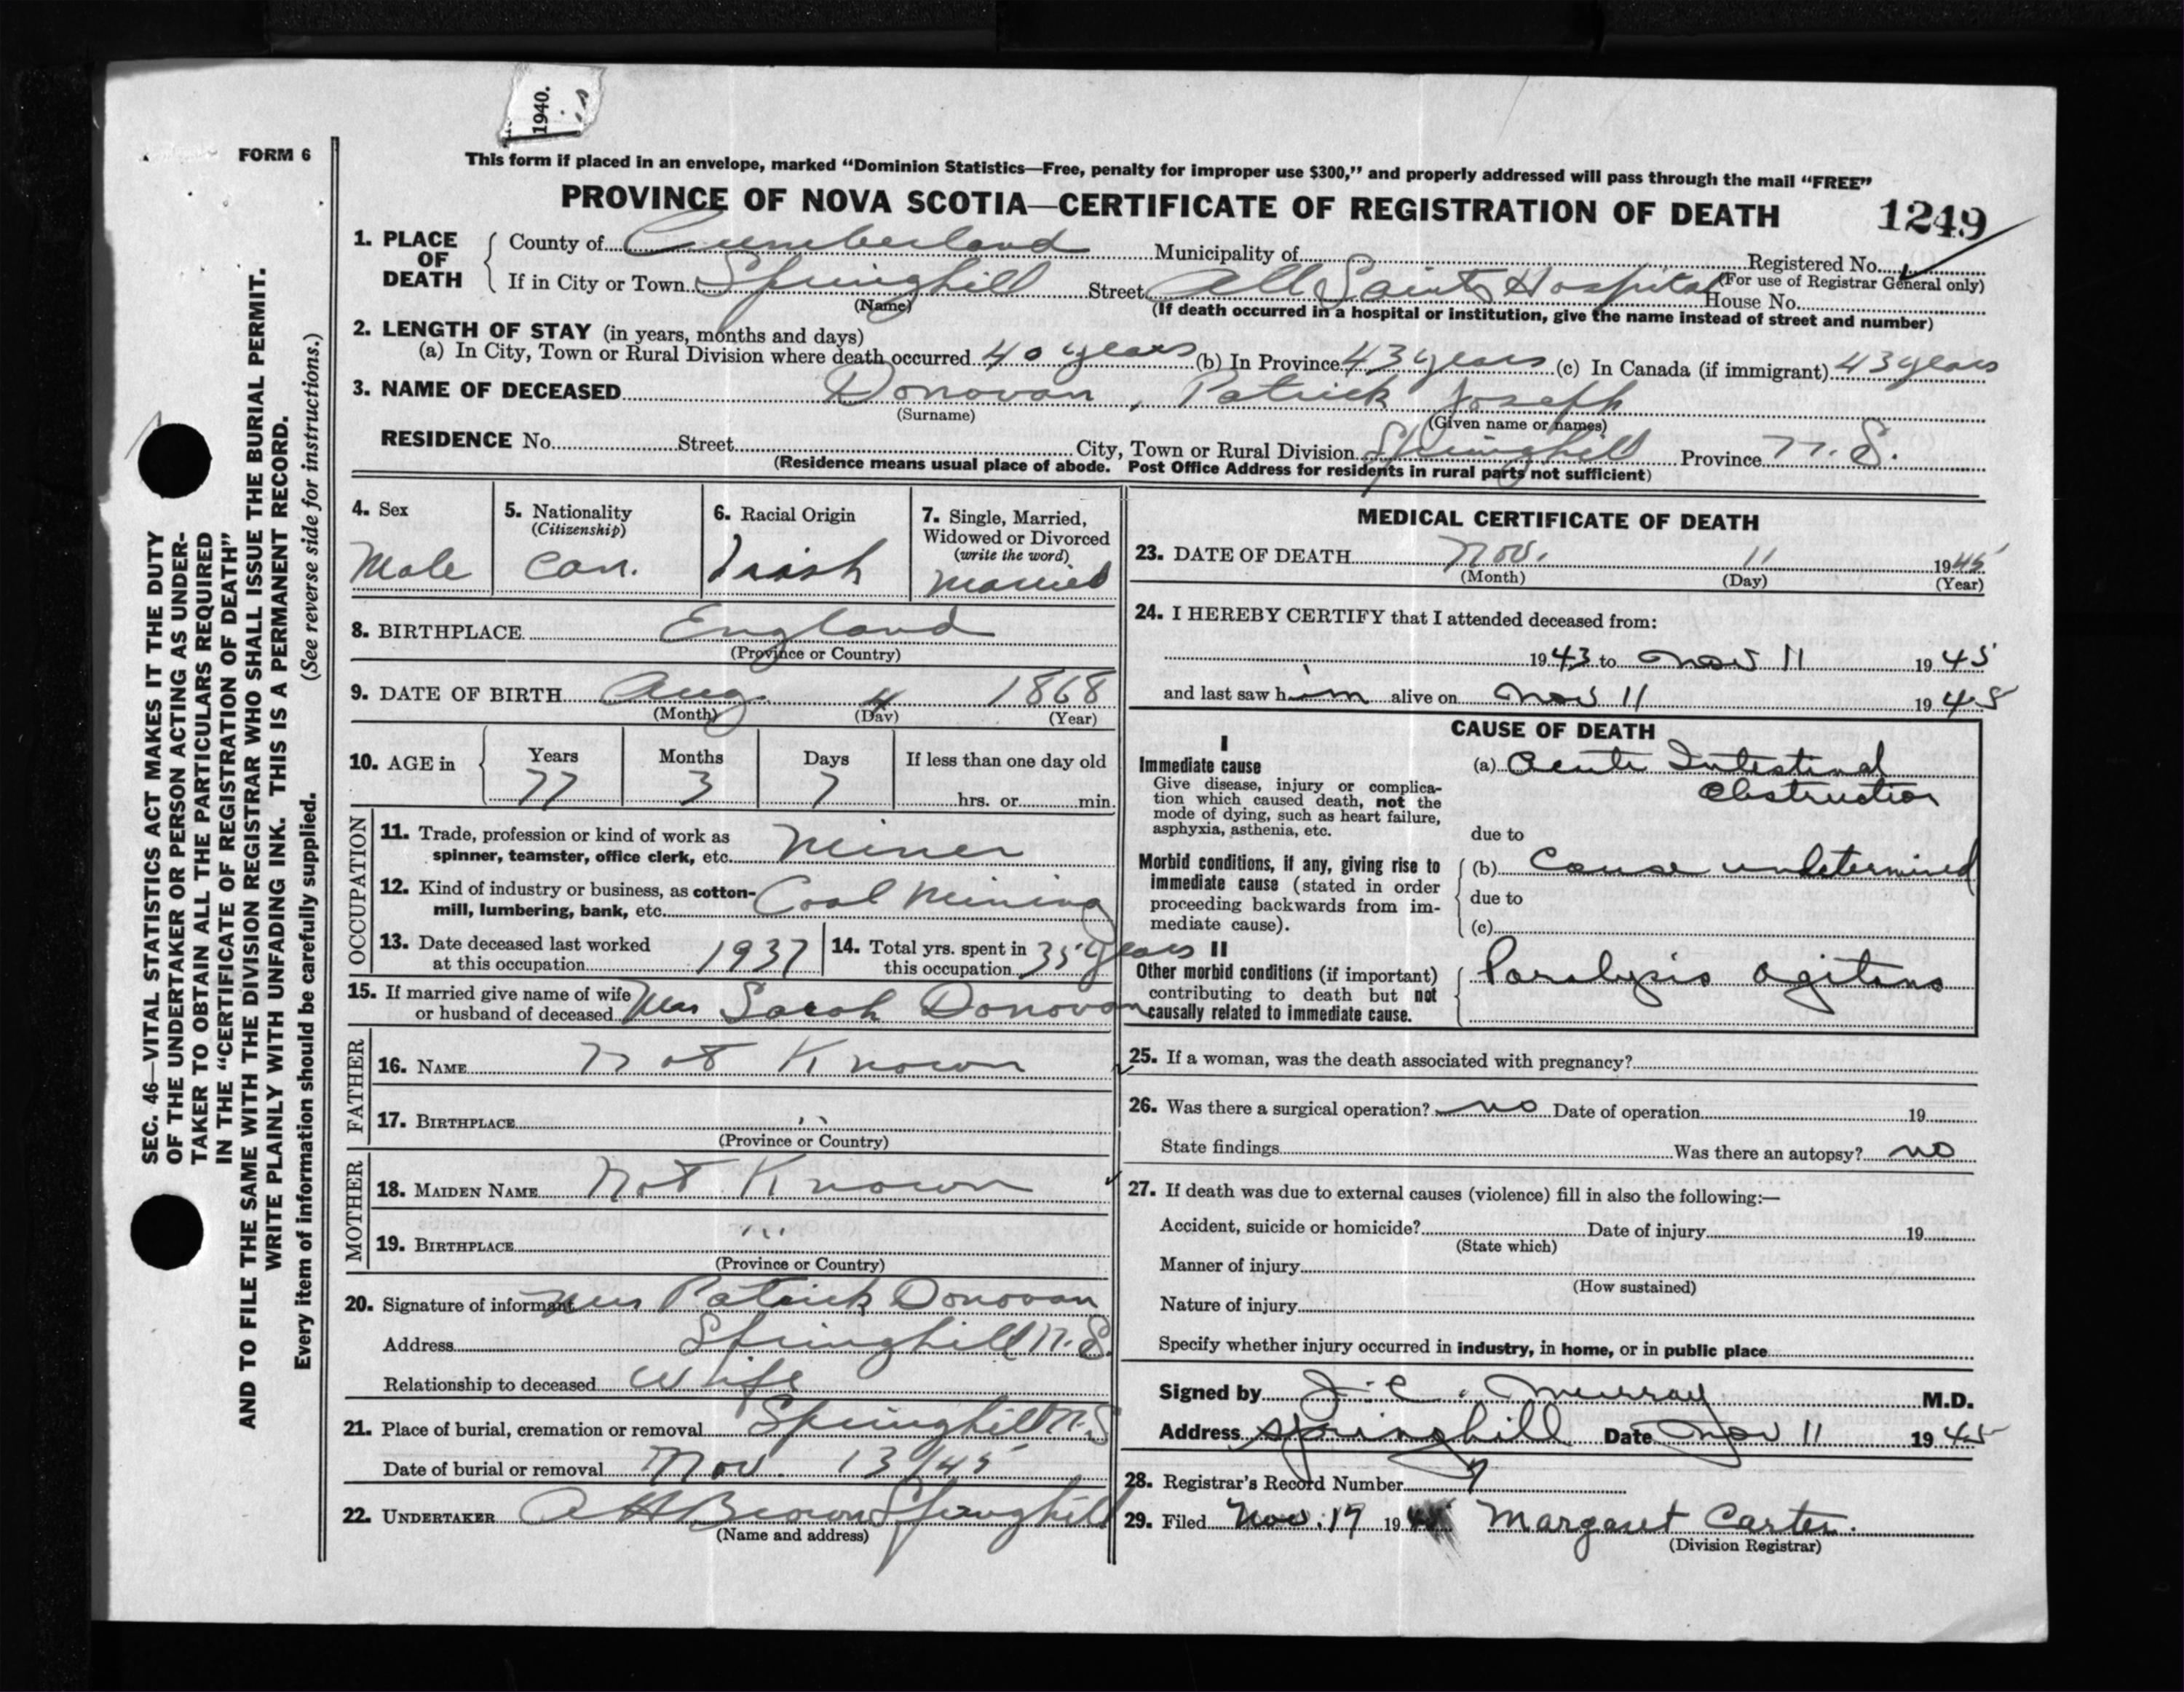 1940.
FORM 6
This form if placed in an envelope, marked “Dominion Statistics—Free, penalty for improper use $300,” and properly addressed will pass through the mail “FREE”
PROVINCE OF NOVA SCOTIA—CERTIFICATE OF REGISTRATION OF DEATH
1249
1. PLACE OF DEATH { County of Cumberland Municipality of Registered No.
(For use of Registrar General only)
If in City or Town Springhill Street All Saints Hospital House No.
(Name)
(If death occurred in a hospital or institution, give the name instead of street and number)
2. LENGTH OF STAY (in years, months and days)
(a) In City, Town or Rural Division where death occurred 40 years (b) In Province 43 years (c) In Canada (if immigrant) 43 years
3. NAME OF DECEASED Donovan, Patrick Joseph
(Surname) (Given name or names)
RESIDENCE No. Street City, Town or Rural Division Springhill Province N.S.
(Residence means usual place of abode. Post Office Address for residents in rural parts not sufficient)
4. Sex
Male
5. Nationality
(Citizenship)
Can.
6. Racial Origin
Irish
7. Single, Married,
Widowed or Divorced
(write the word)
Married
8. BIRTHPLACE England
(Province or Country)
9. DATE OF BIRTH Aug. 4 1868
(Month) (Day) (Year)
10. AGE in { Years Months Days If less than one day old
77 3 7 hrs. or min.
OCCUPATION
11. Trade, profession or kind of work as
spinner, teamster, office clerk, etc. Miner
12. Kind of industry or business, as cotton-
mill, lumbering, bank, etc. Coal Mining
13. Date deceased last worked
at this occupation 1937
14. Total yrs. spent in
this occupation 35 years
15. If married give name of wife
or husband of deceased Mrs Sarah Donovan
FATHER
16. NAME Not Known
17. BIRTHPLACE "
(Province or Country)
MOTHER
18. MAIDEN NAME Not Known
19. BIRTHPLACE "
(Province or Country)
20. Signature of informant Mrs Patrick Donovan
Address Springhill N.S.
Relationship to deceased Wife
21. Place of burial, cremation or removal Springhill N.S
Date of burial or removal Nov. 13/45
22. UNDERTAKER A H Brown Springhill
(Name and address)
MEDICAL CERTIFICATE OF DEATH
23. DATE OF DEATH Nov. 11 1945
(Month) (Day) (Year)
24. I HEREBY CERTIFY that I attended deceased from:
1943 to Nov 11 1945
and last saw him alive on Nov 11 1945
CAUSE OF DEATH
I
Immediate cause
Give disease, injury or complica-
tion which caused death, not the
mode of dying, such as heart failure,
asphyxia, asthenia, etc.
(a) Acute Intestinal
Obstruction
due to
Morbid conditions, if any, giving rise to
immediate cause (stated in order
proceeding backwards from im-
mediate cause).
(b) Cause undetermined
due to
(c)
II
Other morbid conditions (if important)
contributing to death but not
causally related to immediate cause.
Paralysis agitans
25. If a woman, was the death associated with pregnancy?
26. Was there a surgical operation? no Date of operation 19
State findings Was there an autopsy? no
27. If death was due to external causes (violence) fill in also the following:—
Accident, suicide or homicide? Date of injury 19
(State which)
Manner of injury
(How sustained)
Nature of injury
Specify whether injury occurred in industry, in home, or in public place
Signed by J. C. Murray M.D.
Address Springhill Date Nov 11 1945
28. Registrar's Record Number
29. Filed Nov. 17 1945 Margaret Carter.
(Division Registrar)
SEC. 46—VITAL STATISTICS ACT MAKES IT THE DUTY
OF THE UNDERTAKER OR PERSON ACTING AS UNDER-
TAKER TO OBTAIN ALL THE PARTICULARS REQUIRED
IN THE “CERTIFICATE OF REGISTRATION OF DEATH”
AND TO FILE THE SAME WITH THE DIVISION REGISTRAR WHO SHALL ISSUE THE BURIAL PERMIT.
WRITE PLAINLY WITH UNFADING INK. THIS IS A PERMANENT RECORD.
Every item of information should be carefully supplied. (See reverse side for instructions.)